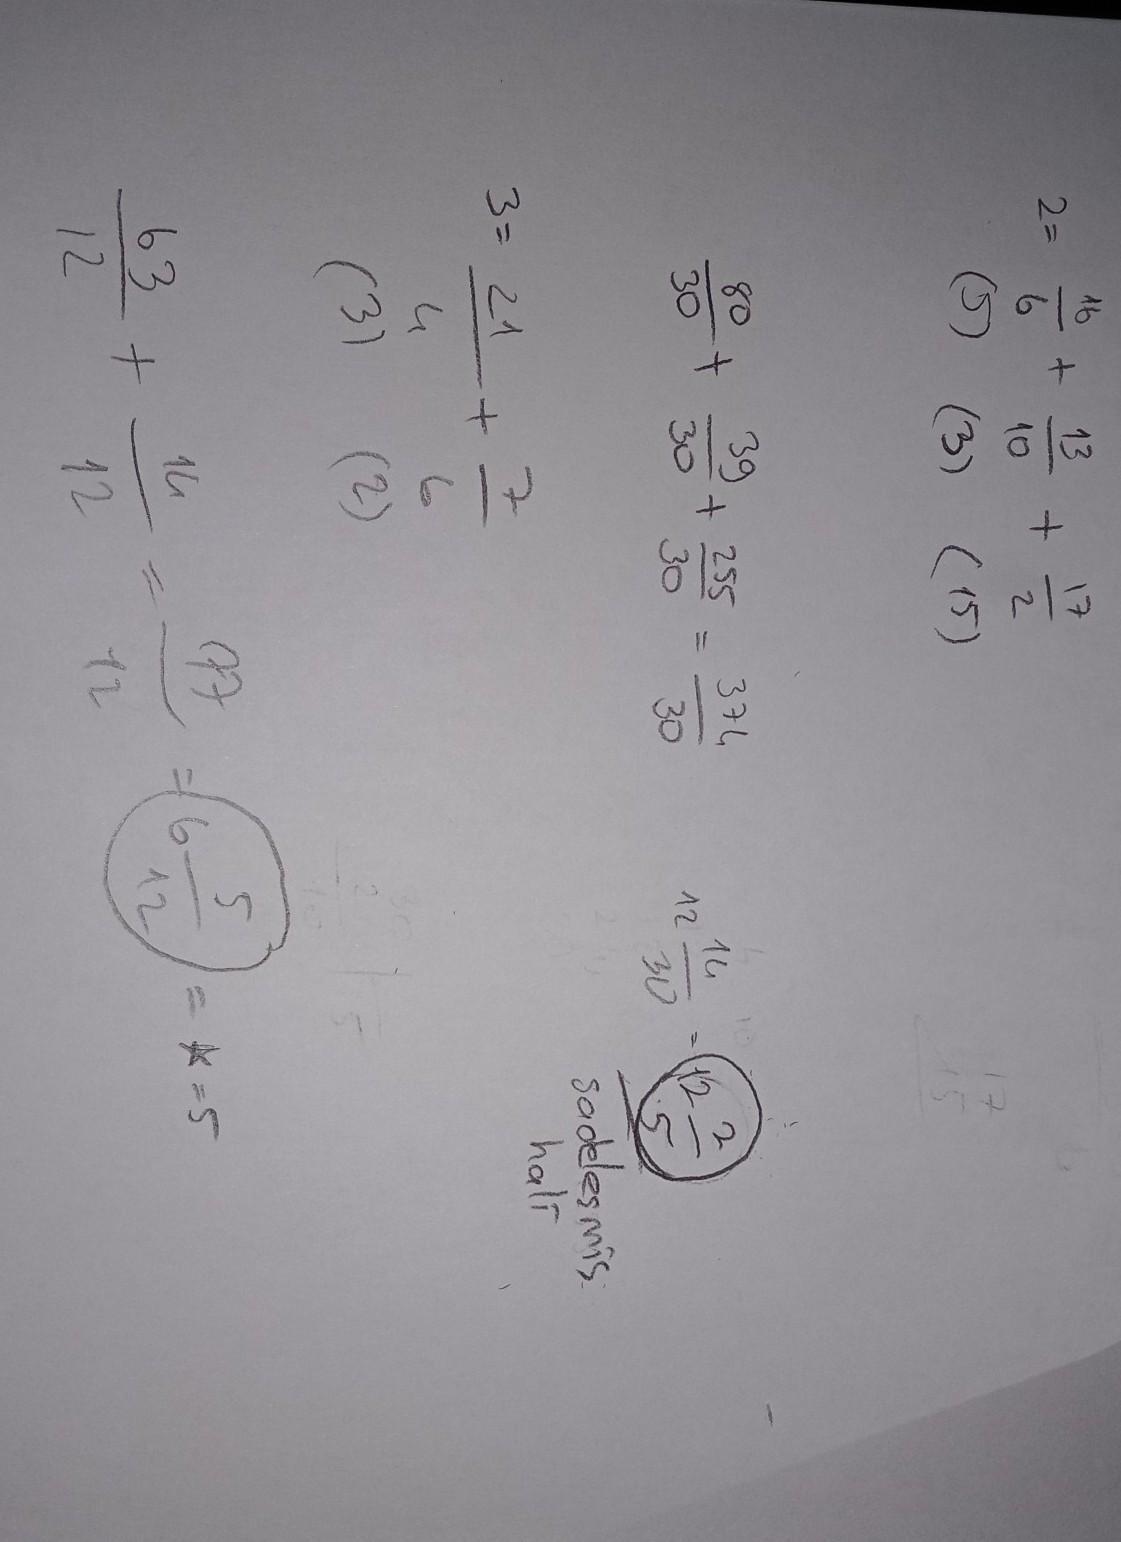 2= 16/6 + 13/10 + 17/2
(5) (3) (15)
80/30 + 39/30 + 255/30 = 374/30 12 14/30 = 12 2/5
sadelesmis
hali
3= 21/4 + 7/6
(3) (2)
63/12 + 14/12 = 77/12 = 6 5/12 = * = 5